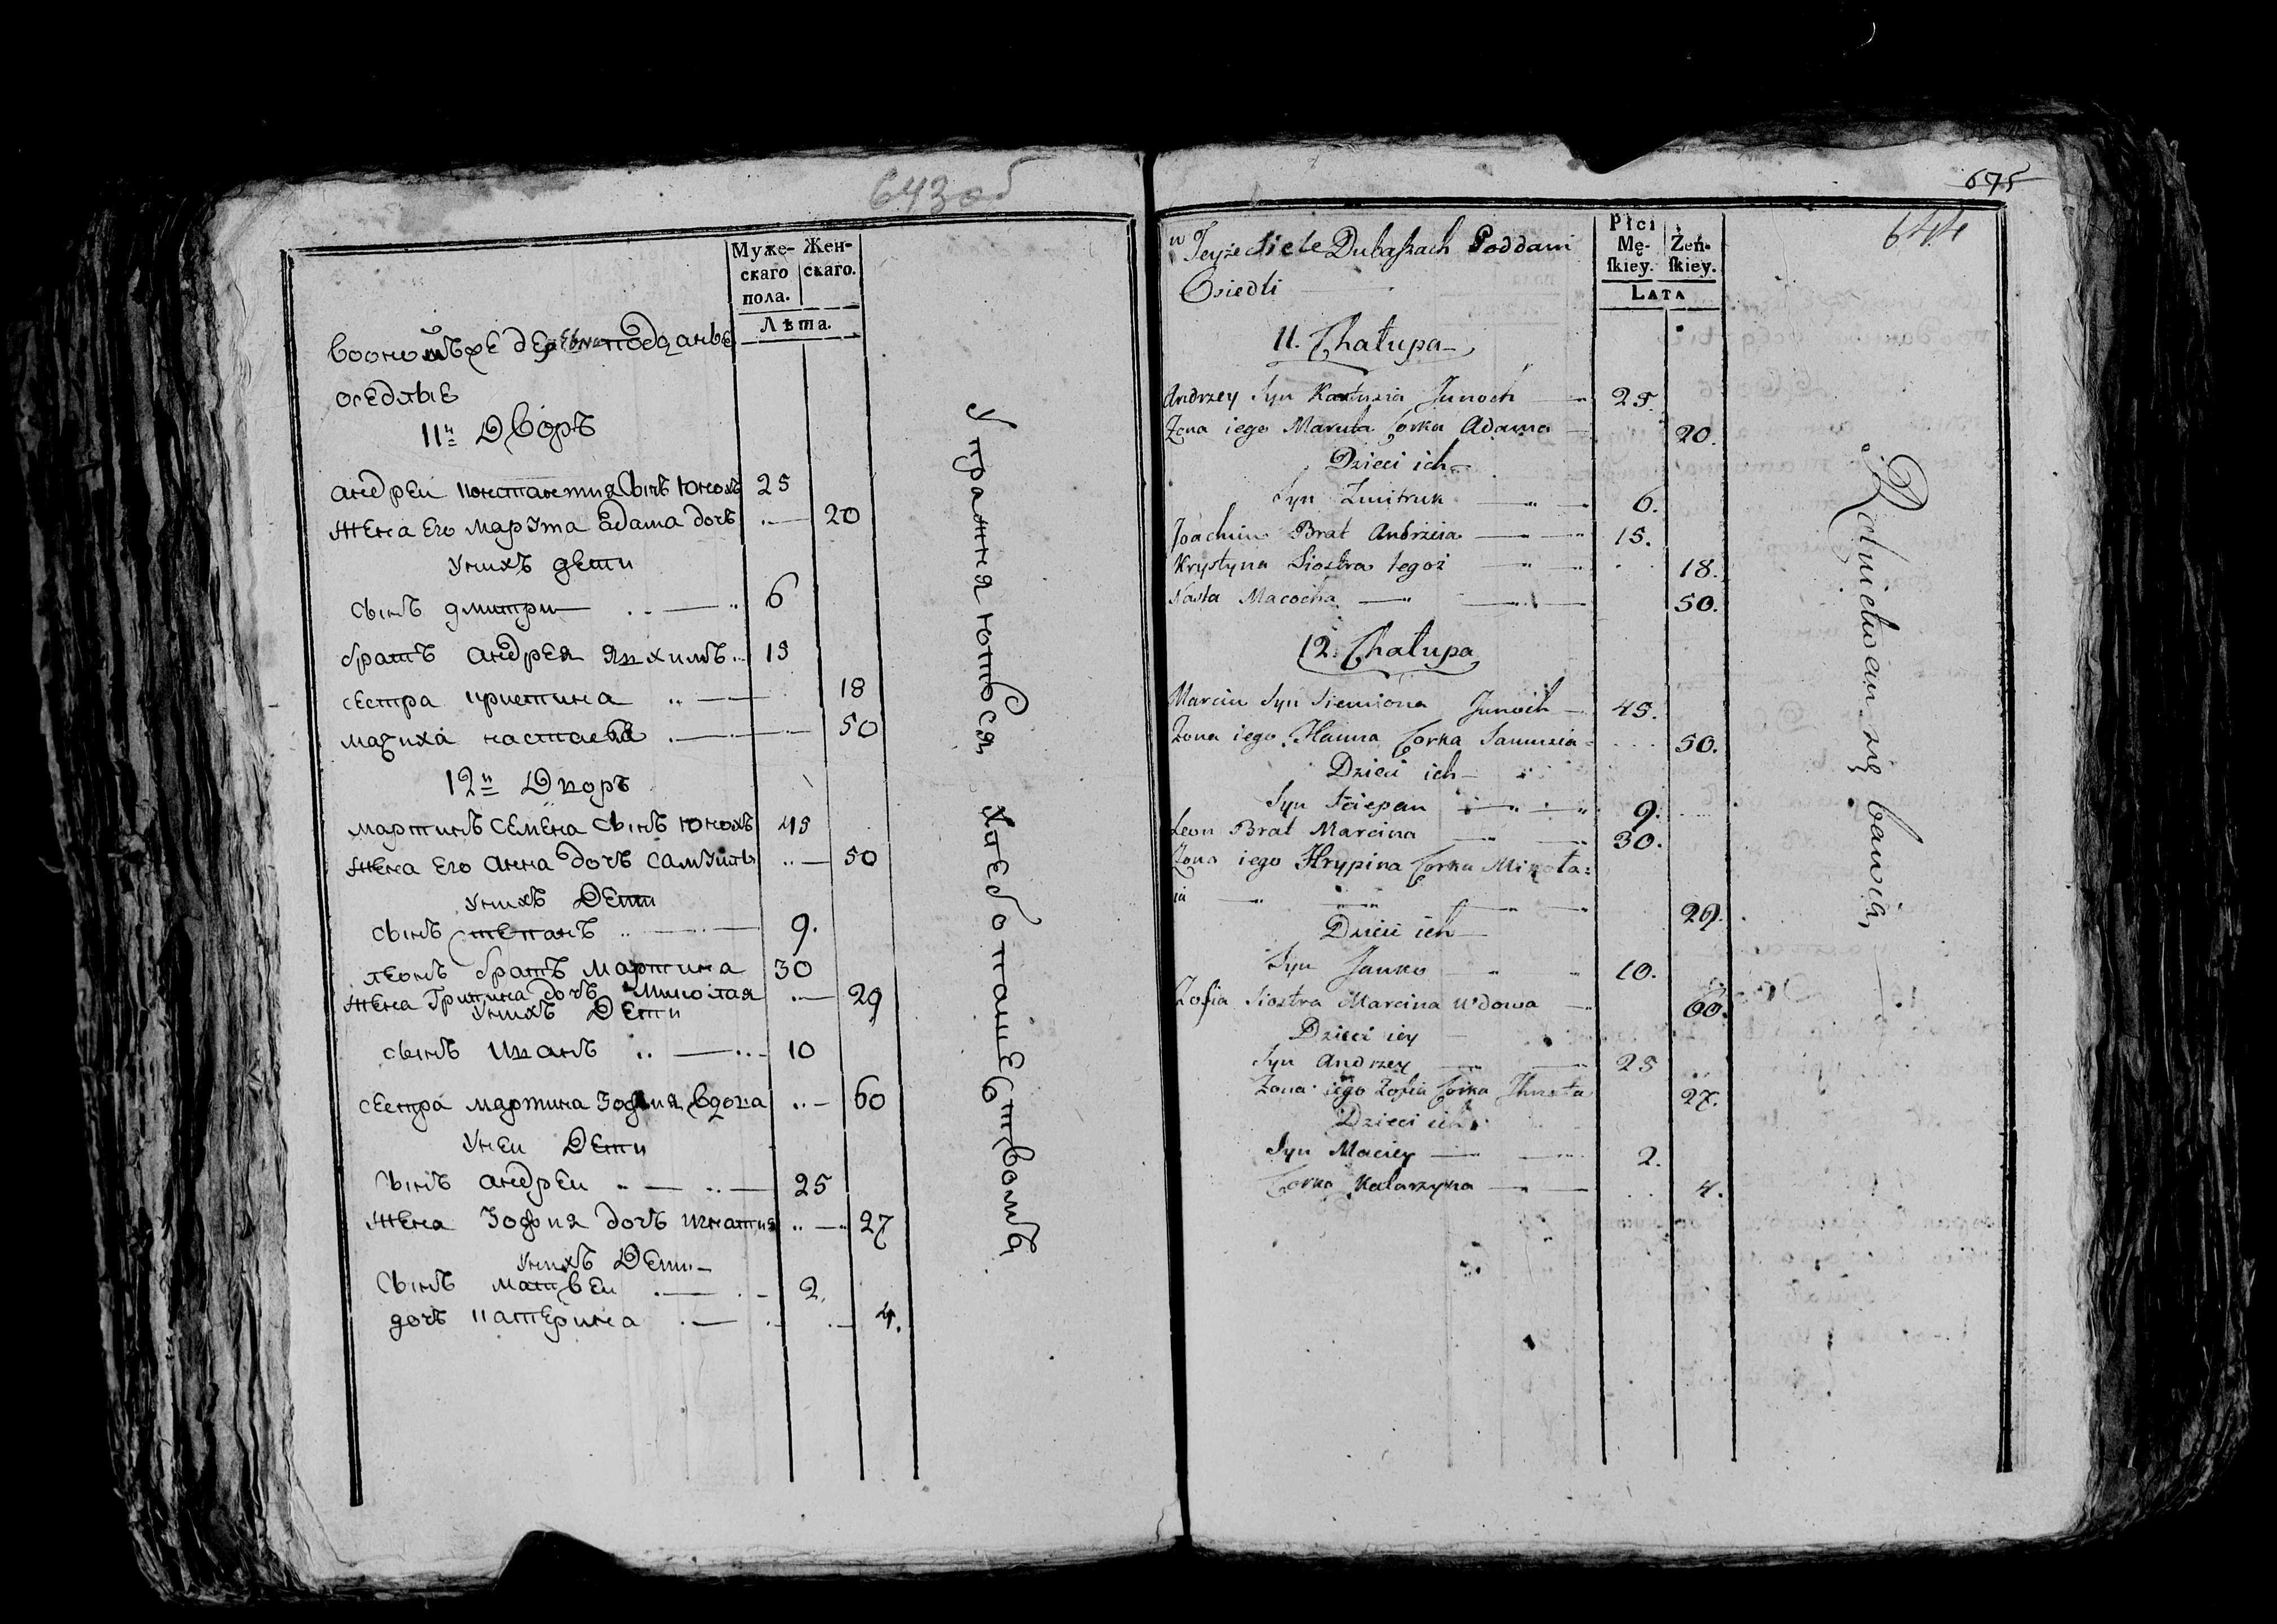 643 об
Муже- Жен-
скаго скаго.
пола.
Лѣта.
подданые
оседлые
11й Дворъ
андреи константия Сынъ Юнохъ 25
жена его марута адама дочъ 20
Унихъ дети
сынъ дмитри 6
братъ андрея якхимъ 15
сестра кристина 18
мачиха настасья 50
12й Дворъ
мартинъ семена сынъ юнохъ 45
жена его анна дочъ самуила 50
унихъ Дети
сынъ степанъ 9.
леонъ братъ мартина 30
жена Грипина дочъ Миколая 29
Унихъ Дети
сынъ иванъ 10
сестра мартина Зофия вдова 60
Унеи Дети
сынъ андреи 25
жена Зофия дочъ игнатия 27
унихъ Дети
Сынъ матвеи 2.
дочъ катерина 4.
Упражняются хлебопашествомъ
675
644
w Teyże Siele Dubaszach Poddani
Osiedli
Płci
Mę- Żeń-
ſkiey. ſkiey.
LATA
11. Chałupa
Andrzey Syn Junoch 25.
Zona iego Maruta Corka Adama 20.
Dzieci ich
Syn Zmitruk 6.
Joachim Brat Andrzeia 15.
Krystyna Siostra tegoż 18.
Nasta Macocha 50.
12. Chałupa
Marcin Syn Siemiona Junoch 45.
Zona iego Hanna Corka Samuela 50.
Dzieci ich
Syn Sciepan 9.
Leon Brat Marcina 30.
Zona iego Hrypina Corka Mikoła:
ia 29.
Dzieci ich
Syn Janko 10.
Zofia Siostra Marcina wdowa 60.
Dzieci iey
Syn Andrzey 25
Zona iego Zofia Corka 27.
Dzieci ich
Syn Maciey 2.
Corka Katarzyna 4.
Rolnictwem się bawią